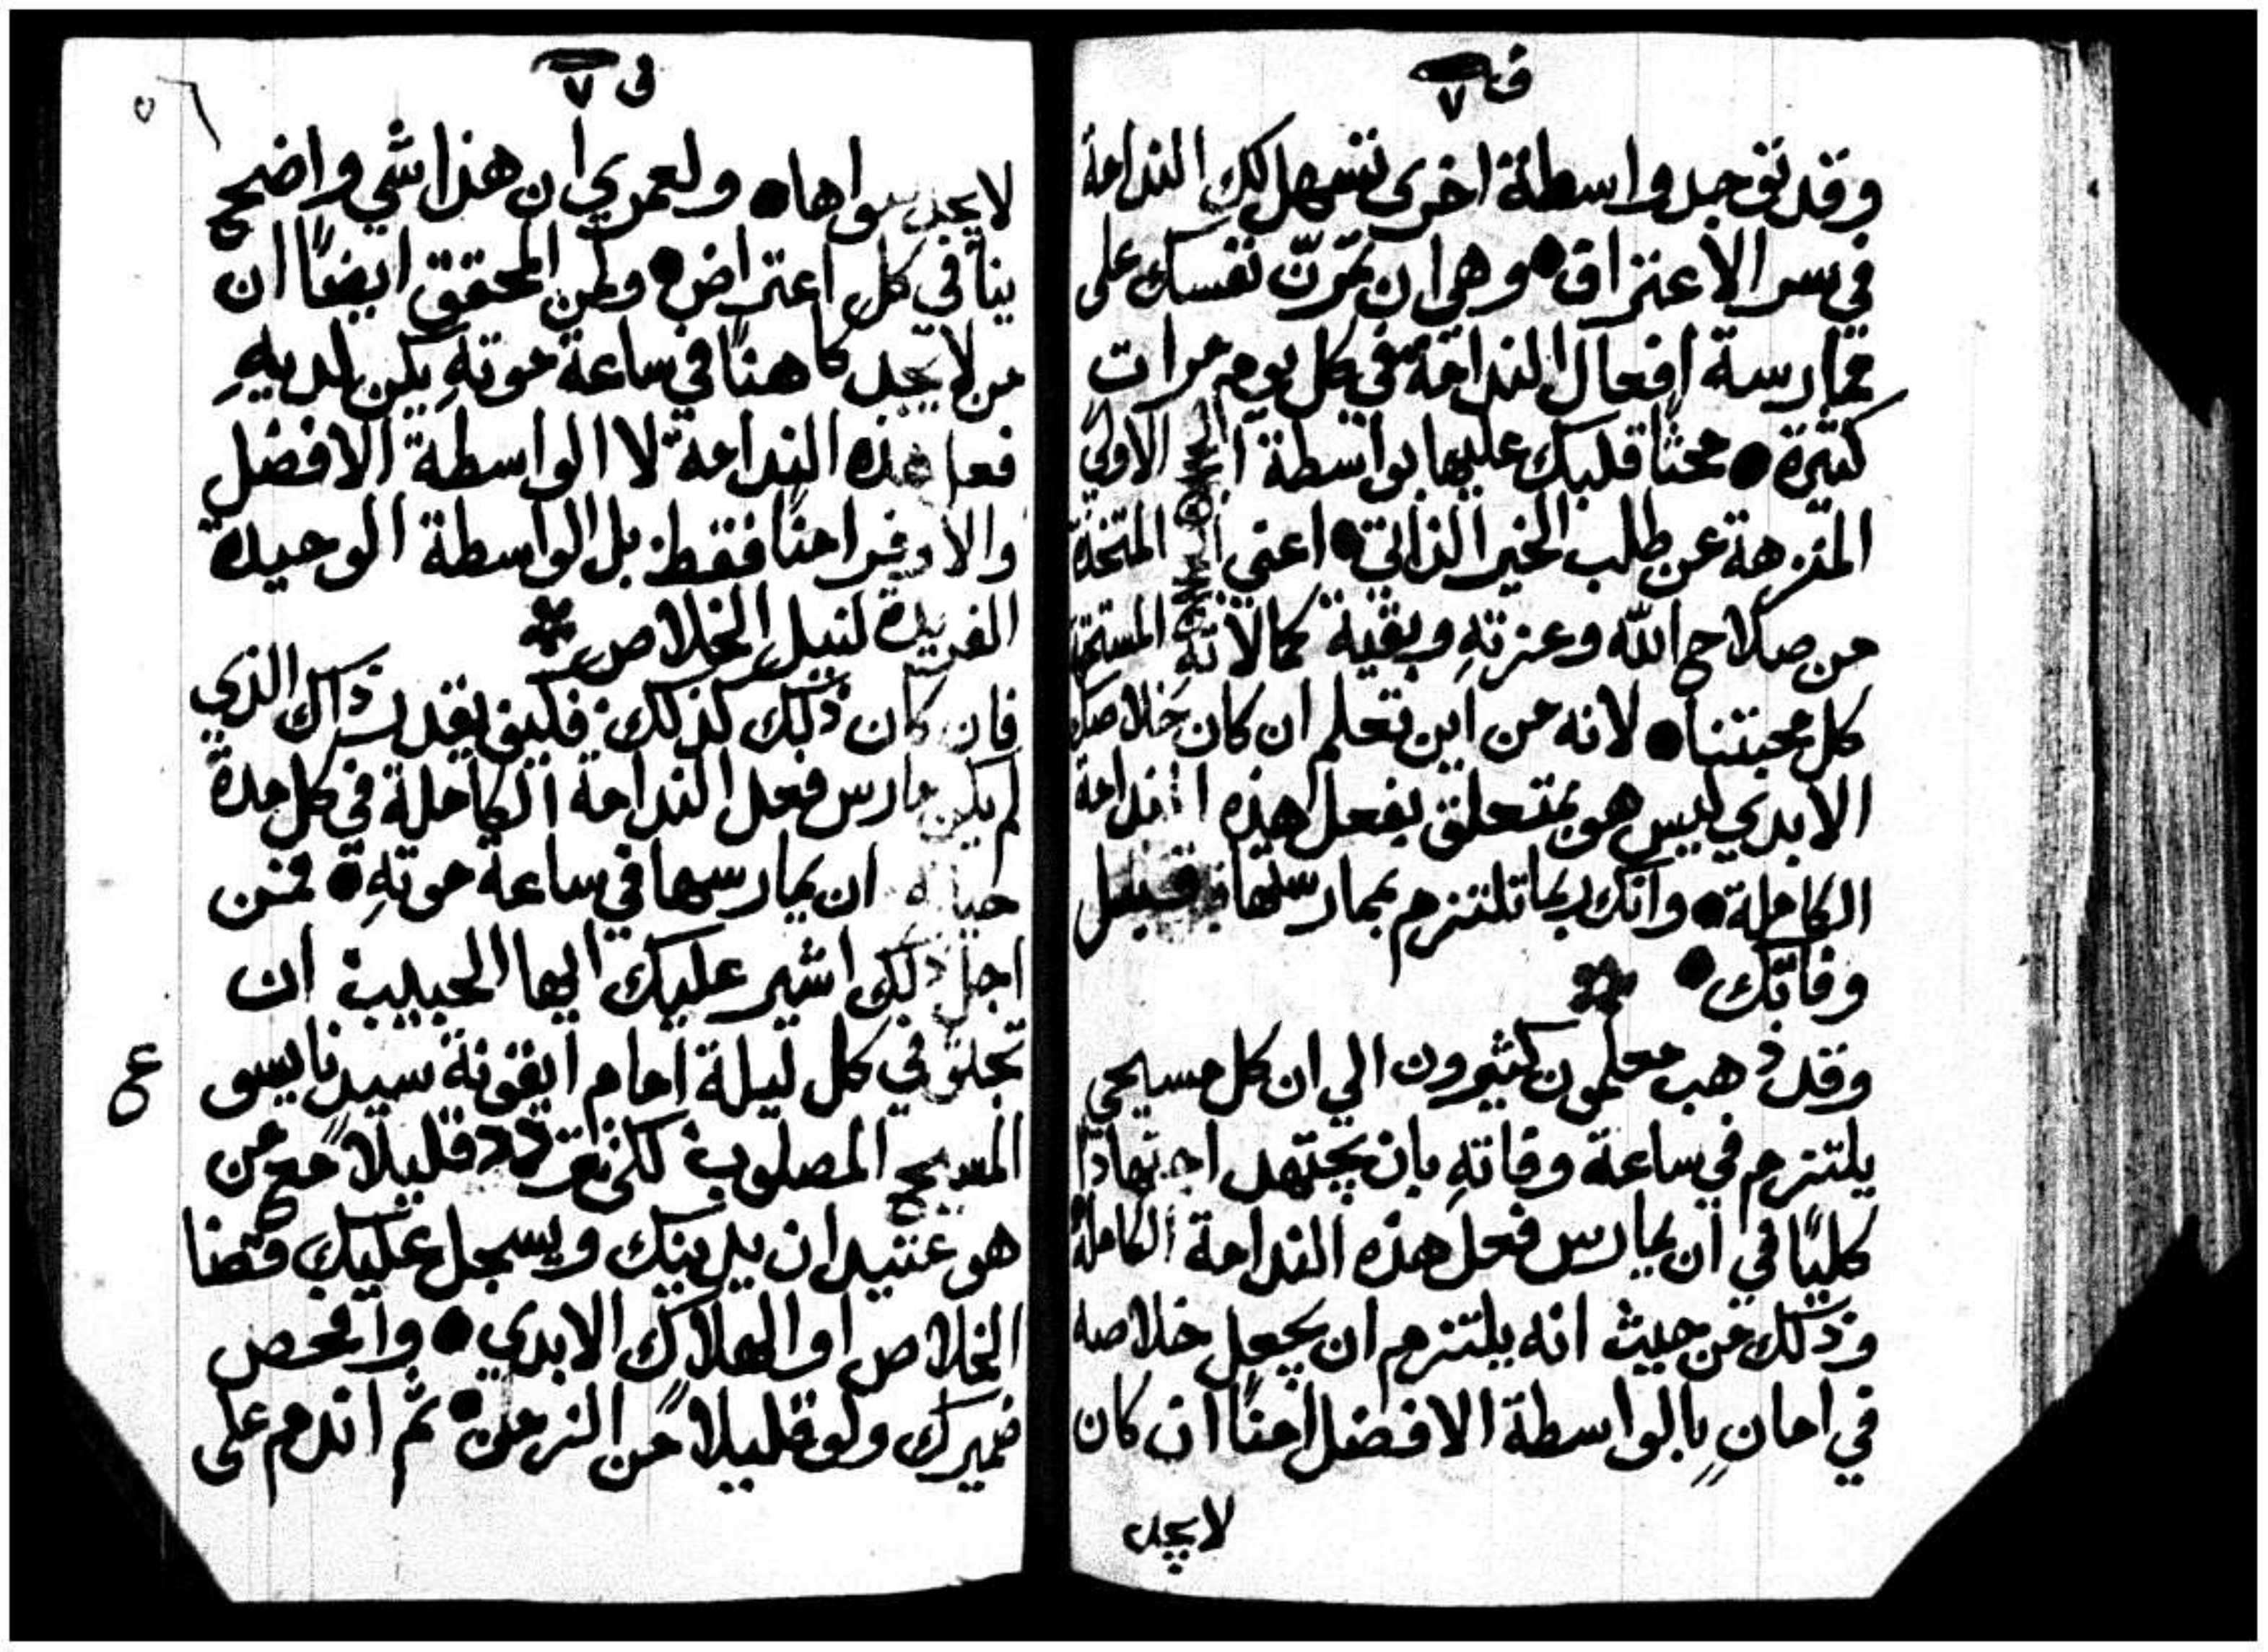 ف ٧
وقد توجد واسطة اخرى تسهل لك الندامة
في سر الاعتراف • وهي ان تمرّن نفسك على
ممارسة افعال الندامة في كل يوم مرات
كثيرة • محثًا قلبك عليها بواسطة الاولى
المنزهة عن طلب الخير الذاتي • اعني المتخذة
من صلاح الله وعزته وبقية كمالاته المستحقة
كل محبتنا • لانه من اين تعلم ان كان خلاصك
الابدي ليس هو بمتعلق بفعل هذه الندامة
الكاملة • وانك ربما تلتزم بممارستها قبل
وفاتك •
وقد ذهب معلمون كثيرون الي ان كل مسيحي
يلتزم في ساعة وفاتهِ بان يجتهد اجتهادًا
كليًا في ان يمارس فعل هذه الندامة الكاملة
وذلك من حيث انه يلتزم ان يجعل خلاصه
في امانٍ بالواسطة الافضل امنًا ان كان
لا يجد
ف ٧
٥٦
لا يجد سواها • ولعمري ان هذا شي واضح
ينافي كل اعتراض • ولمن المحقق ايضًا ان
من لا يجد كاهنًا في ساعة موتهِ يكن لديهِ
فعل هذه الندامة لا الواسطة الافضل
والاوفر امنًا فقط بل الواسطة الوحيدة
الفريدة لنيل الخلاص
فان كان ذلك كذلك فكيف يقدر ذاك الذي
لم يكن مارس فعل الندامة الكاملة في كل مدة
حياته ان يمارسها في ساعة موتهِ • فمن
اجل ذلك اشير عليك ايها الحبيب ان
تجثو في كل ليلة امام ايقونة سيدنا يسو
ع
المسيح المصلوب لكي تفرد قليلًا مع من
هو عتيد ان يدينك ويسجل عليك قضا
الخلاص او الهلاك الابدي • وافحص
ضميرك ولو قليلًا من الزمن • ثم اندم على